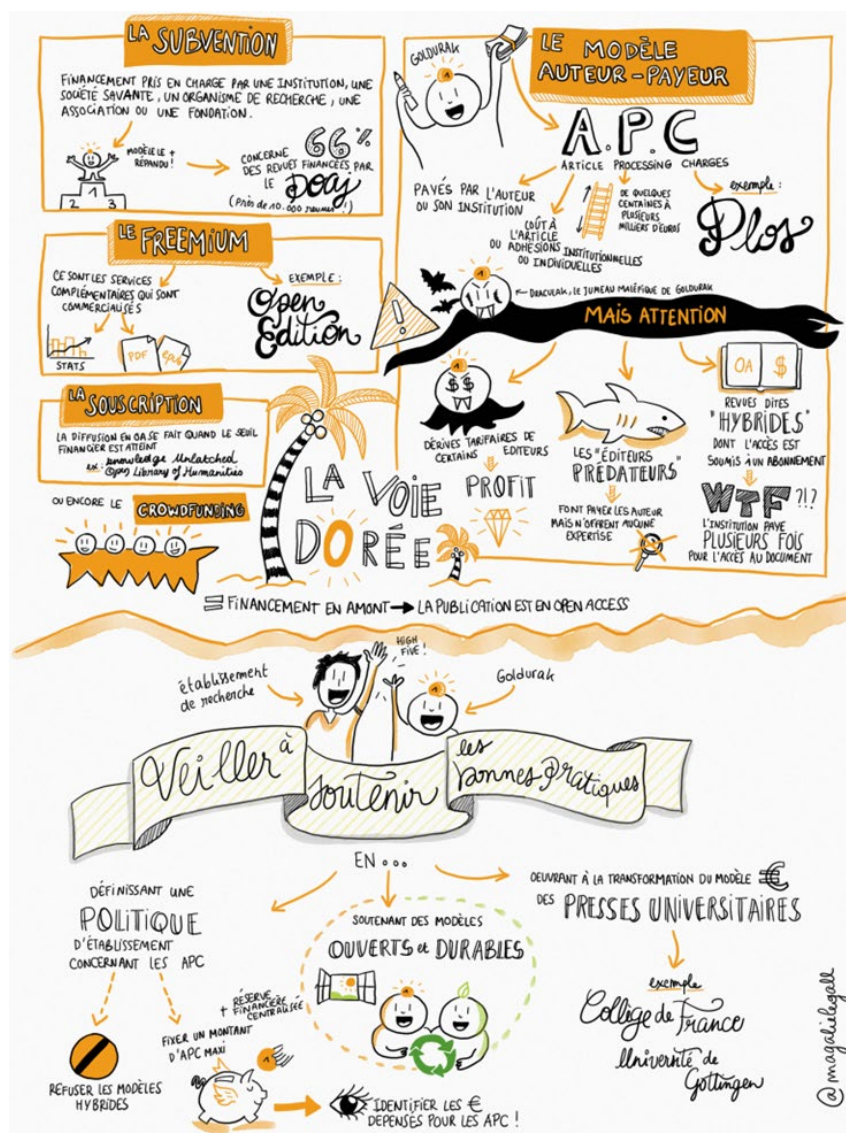 LA SUBVENTION
FINANCEMENT PRIS EN CHARGE PAR UNE INSTITUTION, UNE
SOCIÉTÉ SAVANTE, UN ORGANISME DE RECHERCHE, UNE
ASSOCIATION OU UNE FONDATION.
MODÈLE LE +
RÉPANDU !
1
2
3
CONCERNE 66%
DES REVUES FINANCÉES PAR
LE DOAJ
(Près de 10.000 revues !)
LE FREEMIUM
CE SONT LES SERVICES
COMPLÉMENTAIRES QUI SONT
COMMERCIALISÉS
STATS
PDF
EPUB
EXEMPLE :
Open
Edition
LA
SOUSCRIPTION
LA DIFFUSION EN OA SE FAIT QUAND LE SEUIL
FINANCIER EST ATTEINT
ex : Knowledge Unlatched
Open Library of Humanities
OU ENCORE LE CROWDFUNDING
GOLDURAK
1
LE MODÈLE
AUTEUR-PAYEUR
A.P.C
ARTICLE PROCESSING CHARGES
PAYÉS PAR L'AUTEUR
OU SON INSTITUTION
COÛT À
L'ARTICLE
OU ADHÉSIONS INSTITUTIONNELLES
OU INDIVIDUELLES
DE QUELQUES
CENTAINES À
PLUSIEURS
MILLIERS D'EUROS
exemple :
Plos
DRACULAK, LE JUMEAU MALÉFIQUE DE GOLDURAK
!
MAIS ATTENTION
$ $
DÉRIVES TARIFAIRES DE
CERTAINS EDITEURS
PROFIT
LES "ÉDITEURS
PRÉDATEURS"
FONT PAYER LES AUTEUR
MAIS N'OFFRENT AUCUNE
EXPERTISE
OA $
REVUES DITES
"HYBRIDES"
DONT L'ACCÈS EST
SOUMIS À UN ABONNEMENT
WTF ?!?
L'INSTITUTION PAYE
PLUSIEURS FOIS
POUR L'ACCÈS AU DOCUMENT
LA VOIE
DORÉE
= FINANCEMENT EN AMONT → LA PUBLICATION EST EN OPEN ACCESS
établissement
de recherche
HIGH
FIVE !
Goldurak
Veiller à
soutenir
les
bonnes pratiques
EN ...
DÉFINISSANT UNE
POLITIQUE
D'ÉTABLISSEMENT
CONCERNANT LES APC
REFUSER LES MODÈLES
HYBRIDES
FIXER UN MONTANT
D'APC MAXI
+ RÉSERVE
FINANCIÈRE
CENTRALISÉE
IDENTIFIER LES €
DÉPENSÉS POUR LES APC !
SOUTENANT DES MODÈLES
OUVERTS et DURABLES
OEUVRANT À LA TRANSFORMATION DU MODÈLE €
DES PRESSES UNIVERSITAIRES
exemple
Collège de France
Université de
Gottingen
@magalilegall